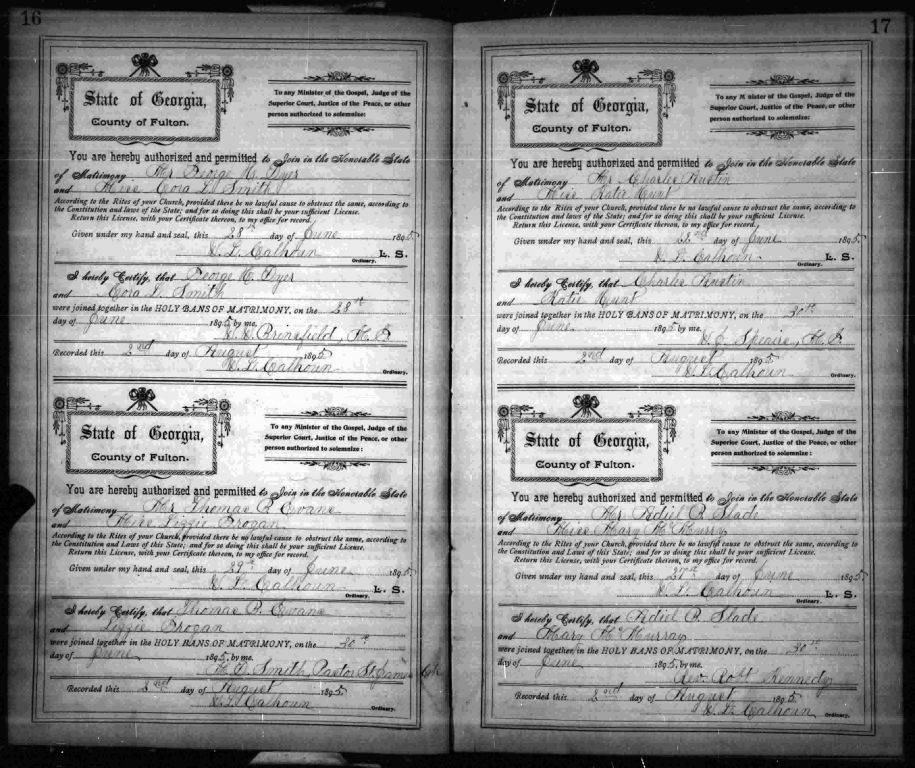 16
State of Georgia,
County of Fulton.
To any Minister of the Gospel, Judge of the
Superior Court, Justice of the Peace, or other
person authorized to solemnize:
You are hereby authorized and permitted to Join in the Honorable State
of Matrimony Mr George H. Dyer
and Miss Cora L. Smith
According to the Rites of your Church, provided there be no lawful cause to obstruct the same, according to
the Constitution and laws of the State; and for so doing this shall be your sufficient License.
Return this License, with your Certificate thereon, to my office for record.
Given under my hand and seal, this 28th day of June 1895
W. L. Calhoun L. S.
Ordinary.
I hereby Certify, that George H. Dyer
and Cora L. Smith
were joined together in the HOLY BANS OF MATRIMONY, on the 28th
day of June 1895 by me.
Brinsfield,
Recorded this 2nd day of August 1895
W. L. Calhoun
Ordinary.
State of Georgia,
County of Fulton.
To any Minister of the Gospel, Judge of the
Superior Court, Justice of the Peace, or other
person authorized to solemnize:
You are hereby authorized and permitted to Join in the Honorable State
of Matrimony Mr Thomas P. Evans
and Miss Lizzie Brogan
According to the Rites of your Church, provided there be no lawful cause to obstruct the same, according to
the Constitution and Laws of this State; and for so doing this shall be your sufficient License.
Return this License, with your Certificate thereon, to my office for record.
Given under my hand and seal, this 29th day of June 1895
W. L. Calhoun L. S.
Ordinary.
I hereby Certify, that Thomas P. Evans
and Lizzie Brogan
were joined together in the HOLY BANS OF MATRIMONY, on the 30th
day of June 1895, by me.
Smith Pastor St James
Recorded this 2nd day of August 1895
W. L. Calhoun
Ordinary.
17
State of Georgia,
County of Fulton.
To any Minister of the Gospel, Judge of the
Superior Court, Justice of the Peace, or other
person authorized to solemnize:
You are hereby authorized and permitted to Join in the Honorable State
of Matrimony Mr Charles Austin
and Miss Katie Hunt
According to the Rites of your Church, provided there be no lawful cause to obstruct the same, according to
the Constitution and laws of the State; and for so doing this shall be your sufficient License.
Return this License, with your Certificate thereon, to my office for record.
Given under my hand and seal, this 22nd day of June 1895
W. L. Calhoun L. S.
Ordinary.
I hereby Certify, that Charles Austin
and Katie Hunt
were joined together in the HOLY BANS OF MATRIMONY, on the 30th
day of June 1895 by me.
Speairs,
Recorded this 2nd day of August 1895
W. L. Calhoun
Ordinary.
State of Georgia,
County of Fulton.
To any Minister of the Gospel, Judge of the
Superior Court, Justice of the Peace, or other
person authorized to solemnize:
You are hereby authorized and permitted to Join in the Honorable State
of Matrimony Mr Fediel P. Slade
and Miss Mary McMurry
According to the Rites of your Church, provided there be no lawful cause to obstruct the same, according to
the Constitution and Laws of this State; and for so doing this shall be your sufficient License.
Return this License, with your Certificate thereon, to my office for record.
Given under my hand and seal, this 27th day of June 1895
W. L. Calhoun L. S.
Ordinary.
I hereby Certify, that Fediel P. Slade
and Mary McMurray
were joined together in the HOLY BANS OF MATRIMONY, on the 30th
day of June 1895, by me.
Rev. Robt Kennedy
Recorded this 2nd day of August 1895
W. L. Calhoun
Ordinary.